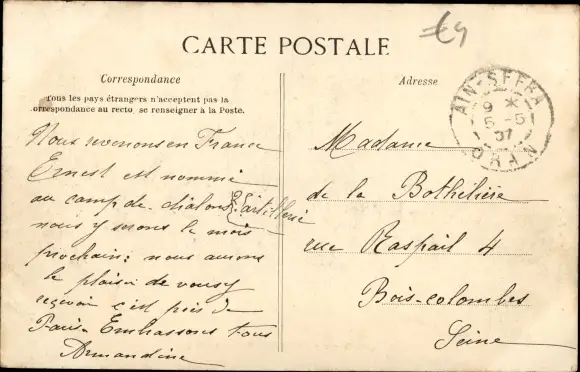 €4
CARTE POSTALE
Correspondance
Tous les pays étrangers n'acceptent pas la
correspondance au recto, se renseigner à la Poste.
Nous revenons en France
Ernest est nommé
au camp de chalons d'artillerie
nous y serons le mois
prochain; nous aurons
le plaisir de vous y
recevoir c'est près de
Paris. Embrassons tous
Armandine
Adresse
AIN-SEFRA
9 *
5 -5
07
ORAN
Madame
de la Bothilière
rue Raspail 4
Bois-colombes
Seine